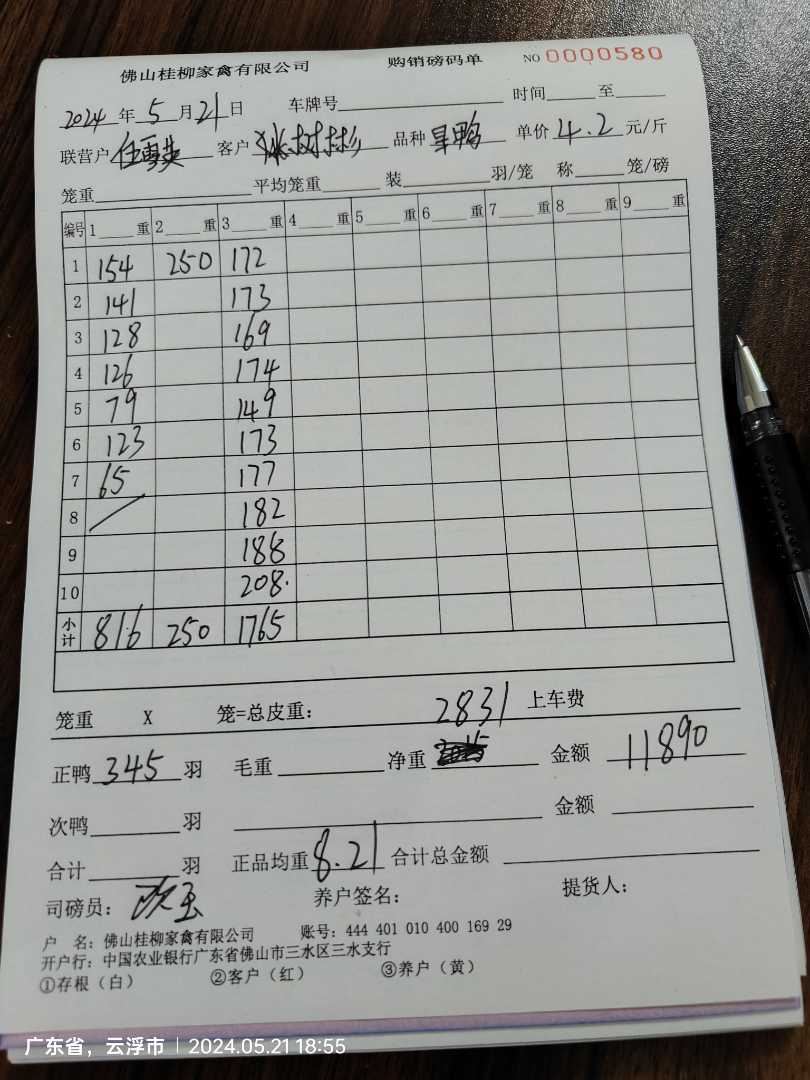 佛山桂柳家禽有限公司 购销磅码单 NO 0000580
2024年5月21日 车牌号 时间 至
联营户 客户 品种 旱鸭 单价 4.2 元/斤
笼重 平均笼重 装 羽/笼 称 笼/磅
编号 1 重 2 重 3 重 4 重 5 重 6 重 7 重 8 重 9 重
1 154 250 172
2 141 173
3 128 169
4 126 174
5 79 149
6 123 173
7 65 177
8 / 182
9 188
10 208.
小计 816 250 1765
笼重 X 笼=总皮重: 2831 上车费
正鸭 345 羽 毛重 净重 金额 11890
次鸭 羽 金额
合计 羽 正品均重 8.21 合计总金额
司磅员: 养户签名: 提货人:
户 名: 佛山桂柳家禽有限公司 账号: 444 401 010 400 169 29
开户行: 中国农业银行广东省佛山市三水区三水支行
①存根(白) ②客户(红) ③养户(黄)
广东省，云浮市 | 2024.05.21 18:55